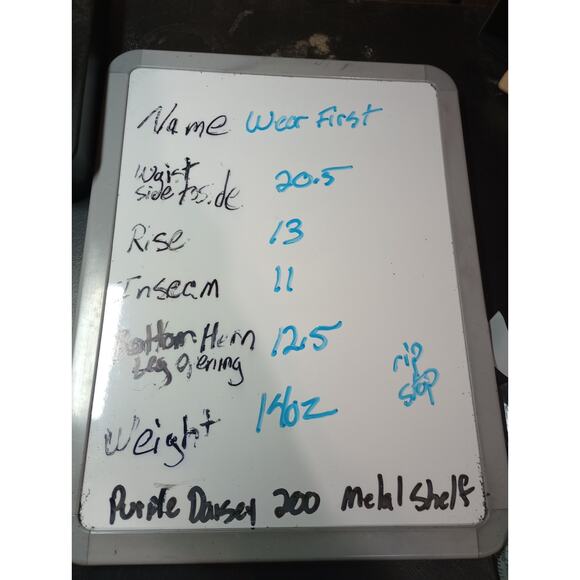 Name Wear First
Waist 20.5
side to side
Rise 13
Inseam 11
Bottom Hem 12.5
Leg Opening
rip
stop
Weight 14oz
Purple Daisey 200 Metal Shelf